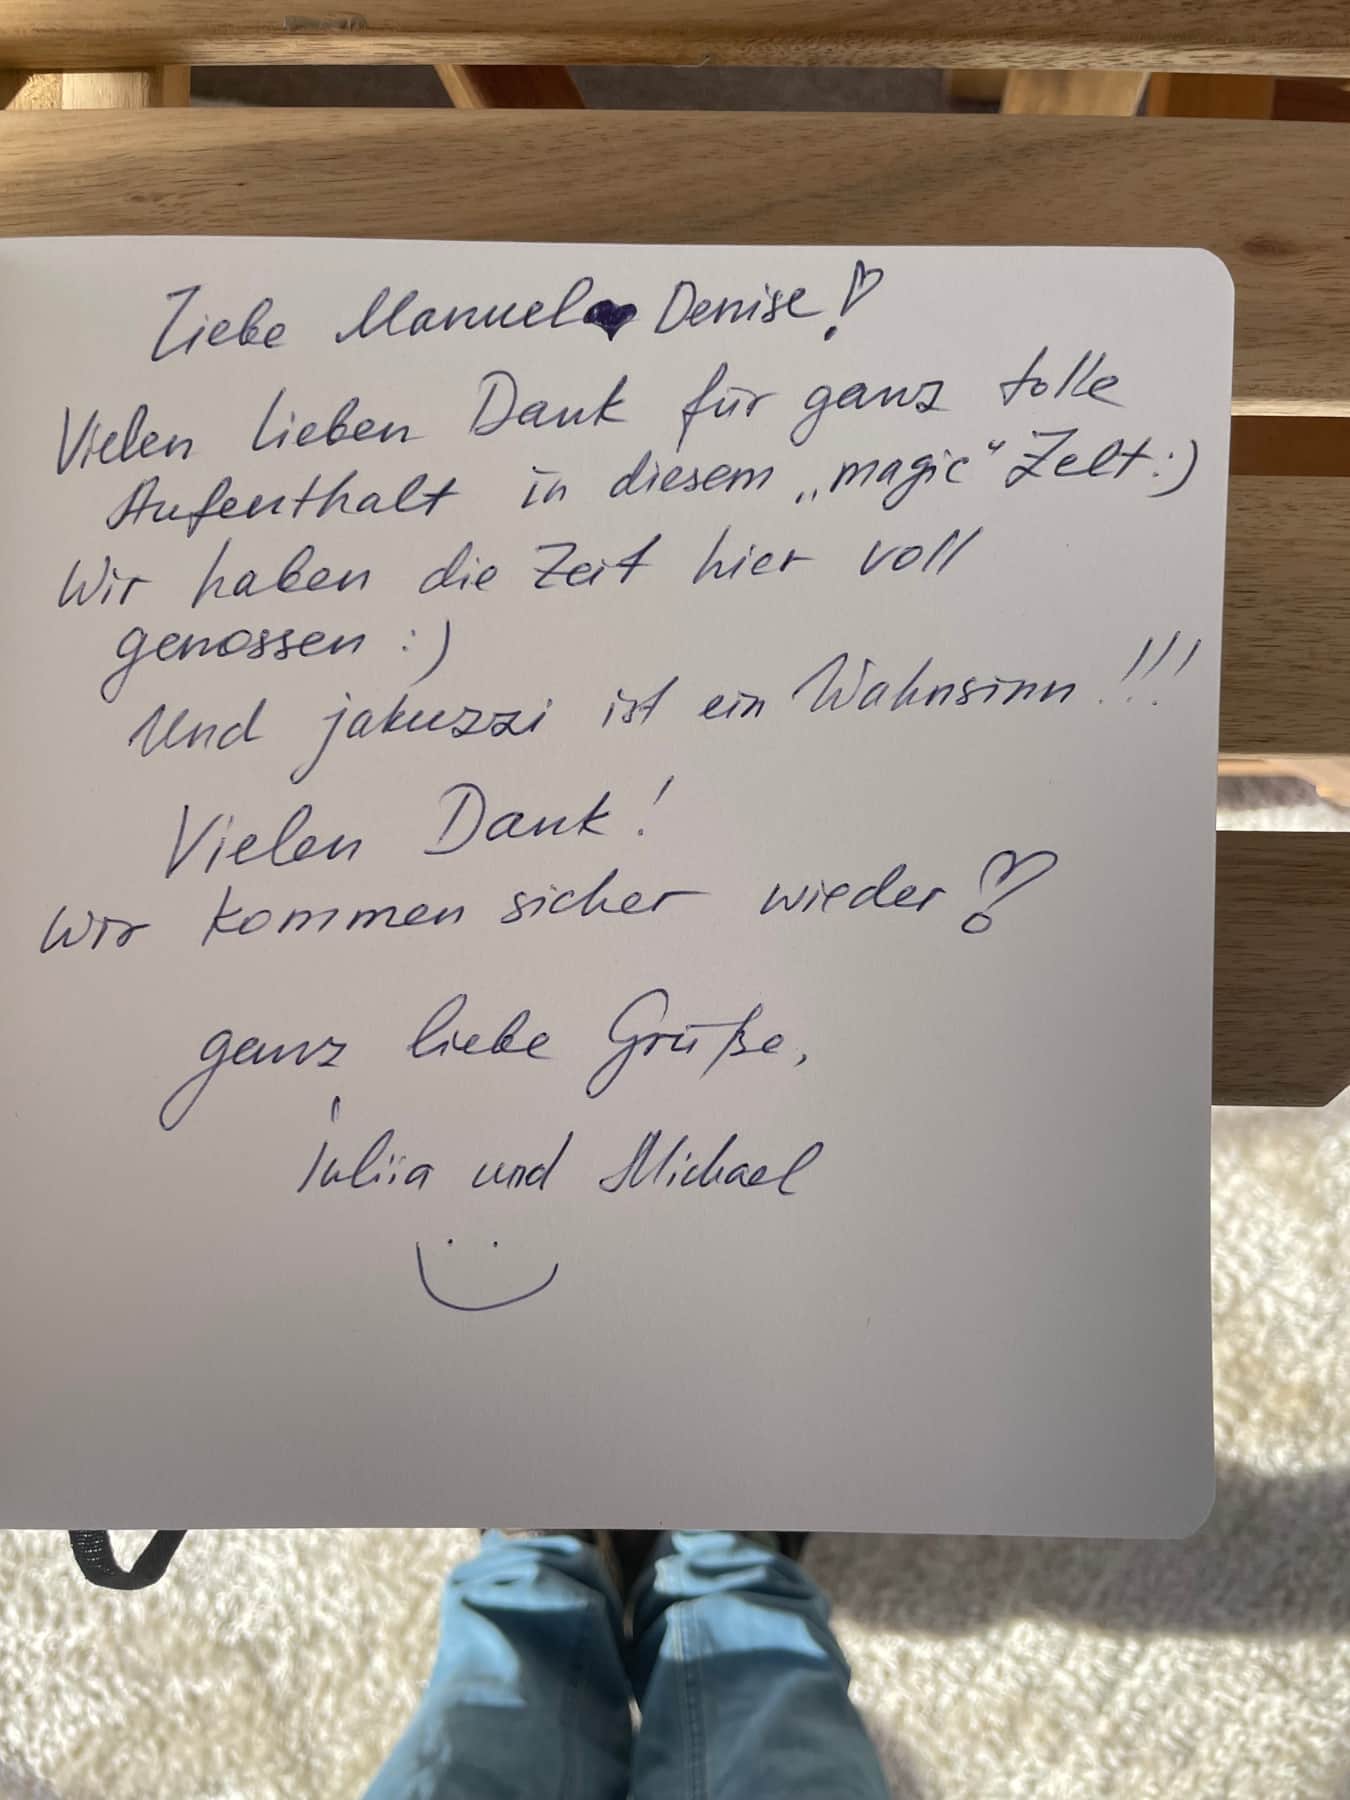 Liebe Manuel ♥ Denise!
Vielen lieben Dank für ganz tolle
Aufenthalt in diesem „magic“ Zelt :)
Wir haben die Zeit hier voll
genossen :)
Und jakuzzi ist ein Wahnsinn!!!
Vielen Dank!
Wir kommen sicher wieder!
ganz liebe Grüße,
Iuliia und Michael